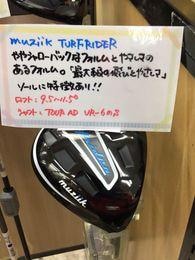 muziik TURFRIDER
ややシャローバックなフォルムとやさしさの
あるフォルム。「最大級の飛びとやさしさ」
ソールに特徴あり!!
ロフト: 9.5~11.5°
シャフト: TOUR AD VR-6の名
muziik